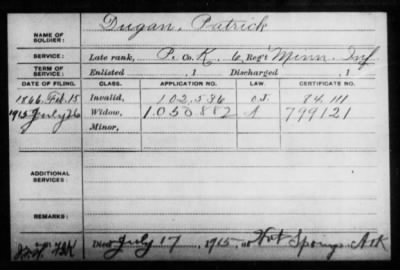 NAME OF SOLDIER: Dugan, Patrick
SERVICE: Late rank, P. Co. K, 6 Reg't Minn. Inf.
TERM OF SERVICE: Enlisted , 1 Discharged , 1
DATE OF FILING. CLASS. APPLICATION NO. LAW. CERTIFICATE NO.
1866 Feb. 15 Invalid, 102.586 O.J. 84.111
1915 July 26 Widow, 1.050882 A 799121
Minor,
ADDITIONAL SERVICES:
REMARKS:
Died July 17, 1915, at Hot Springs Ark